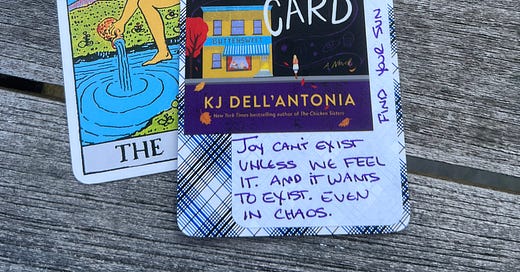 THE
CARD
BUTTERSWEET
A Novel
KJ DELL'ANTONIA
New York Times bestselling author of The Chicken Sisters
JOY CAN'T EXIST
UNLESS WE FEEL
IT. AND IT WANTS
TO EXIST. EVEN
IN CHAOS.
FIND YOUR SUN